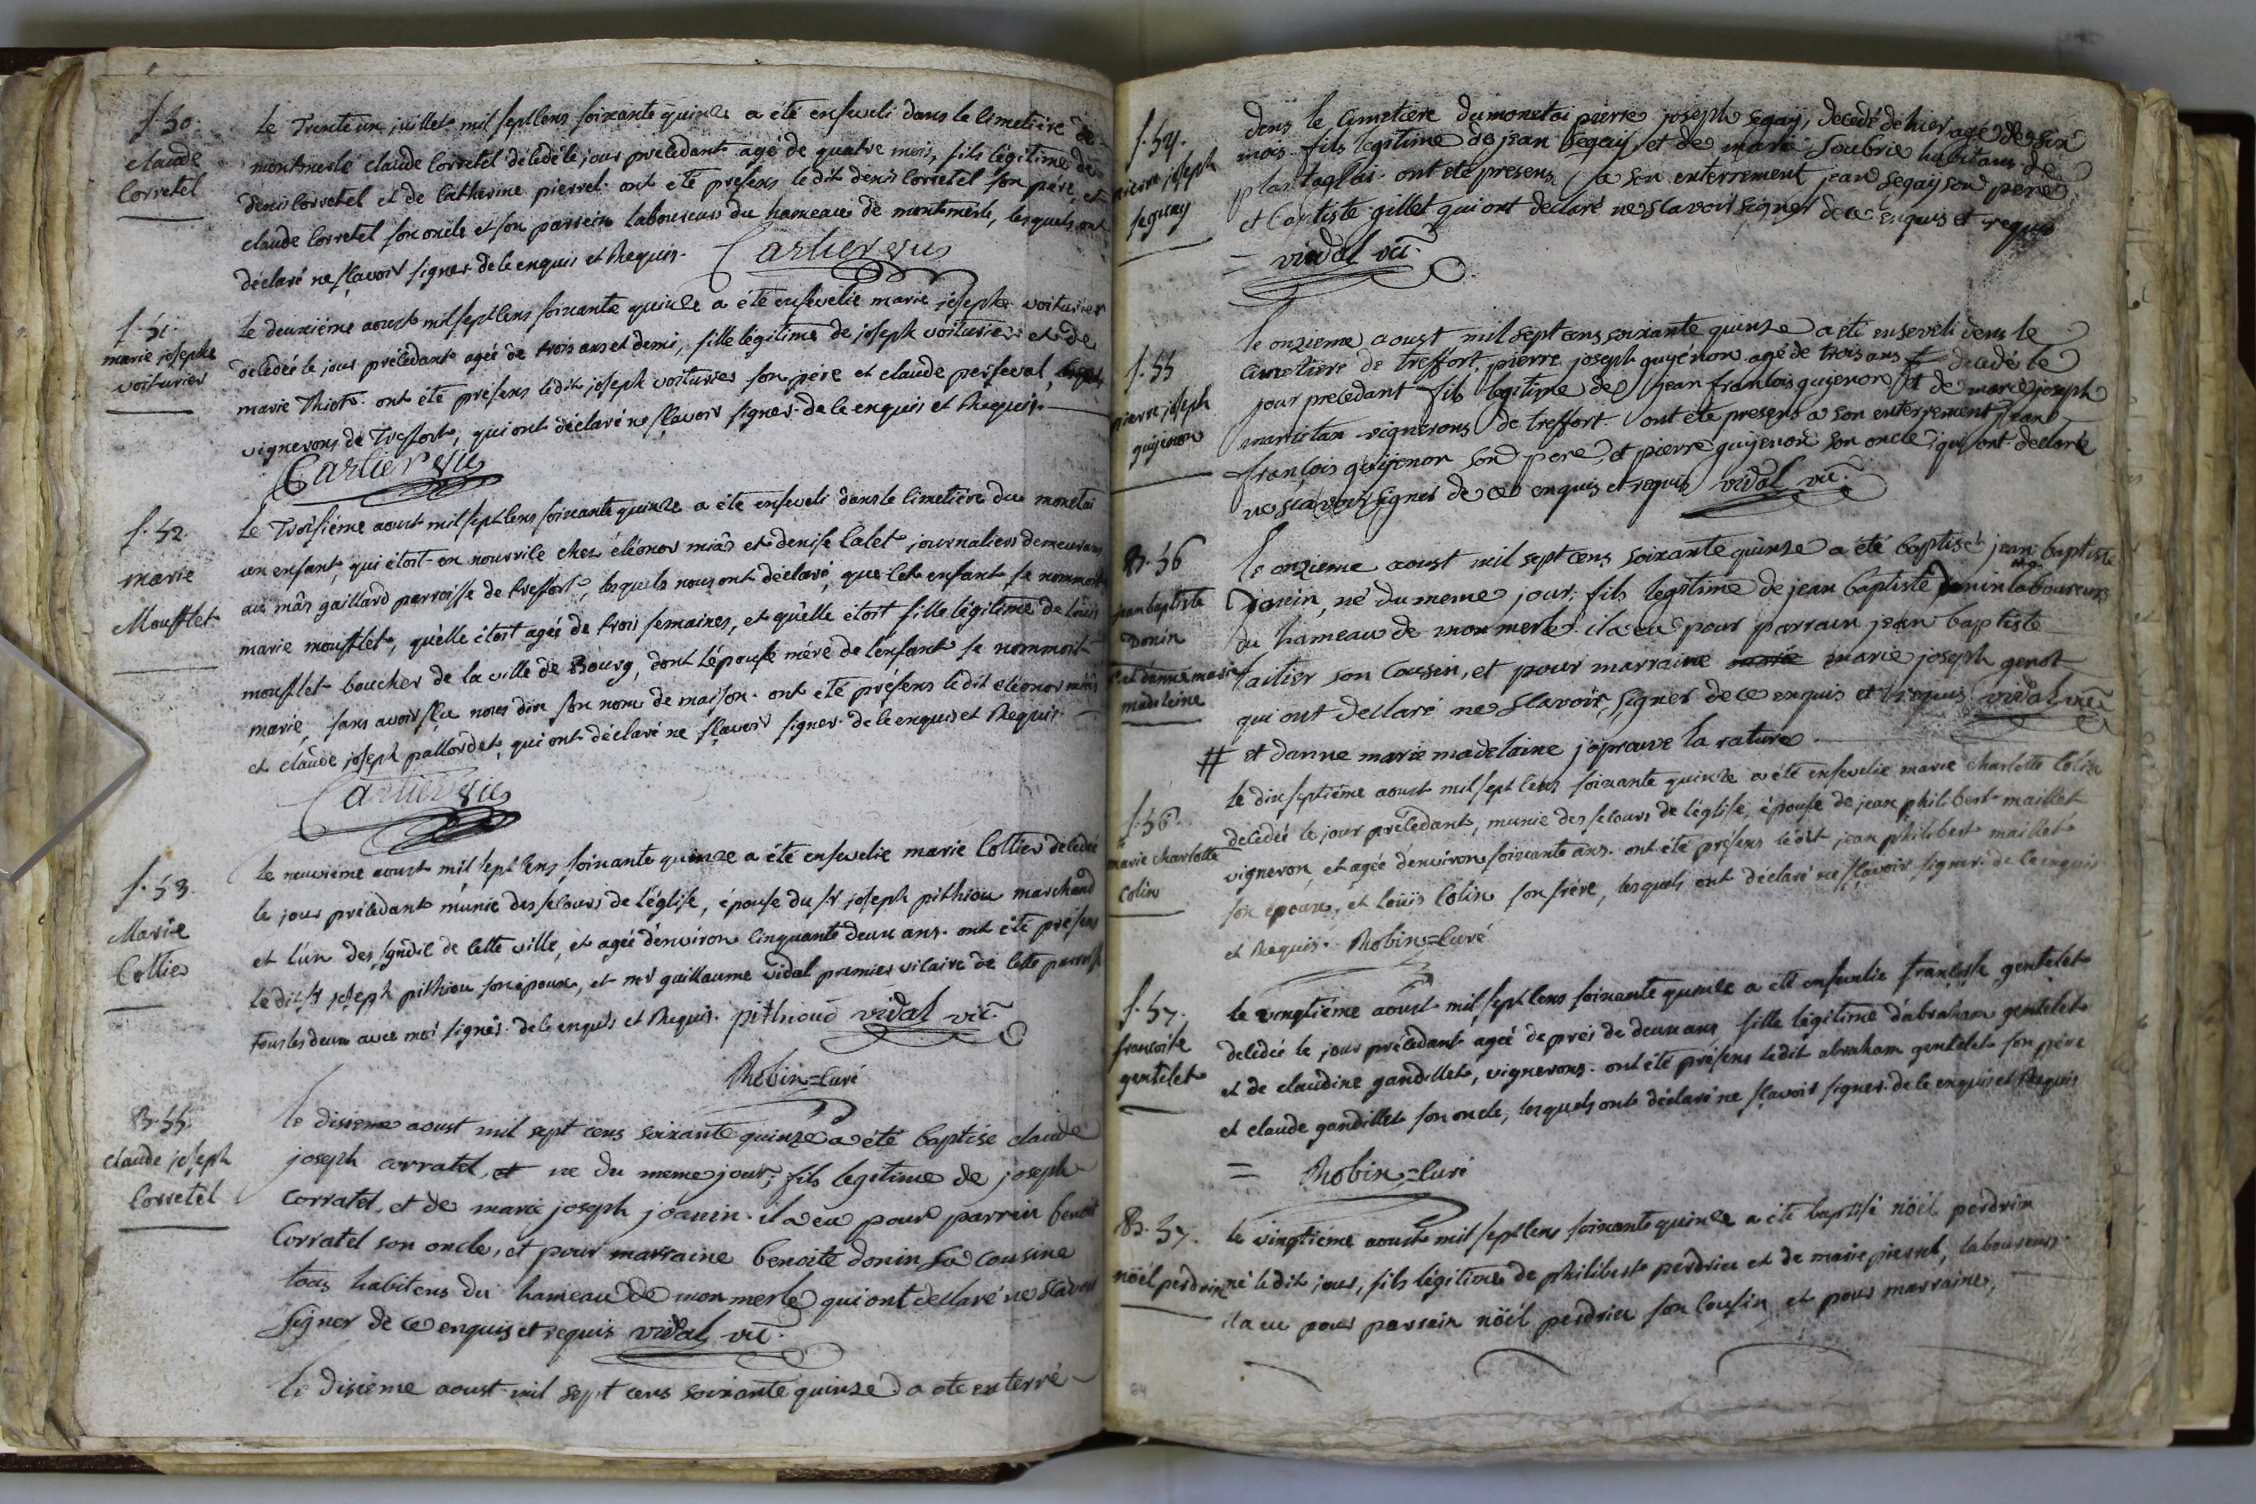 f. 50.
claude
Corretel
Le Trente un juillet mil sept cens soixante quinze a été enseveli dans le cimetière de
montmerle claude Corretel décédé le jour précédant agé de quatre mois, fils légitime de
denis Corretel et de Catherine pierrel. ont été présens ledit denis Corretel son père, et
claude Corretel son oncle et son parrein laboureurs du hameau de montmerle, lesquels ont
déclaré ne sçavoir signer de ce enquis et Requis. Carlier vic
f. 51.
marie josephe
voiturier
Le deuxième aoust mil sept cens soixante quinze a été ensevelie marie josephe voiturier
décédée le jour précédant agée de trois ans et demi, fille légitime de joseph voiturier et de
marie Thiot. ont été présens ledit joseph voiturier son père et claude perseval,
vignerons de Treffort, qui ont déclaré ne sçavoir signer de ce enquis et Requis.
Carlier vic
f. 52.
marie
Moufflet
Le Troisième aoust mil sept cens soixante quinze a été enseveli dans le cimetière du monetai
un enfant, qui étoit en nourrice chez éléonor miâs et denise Calet journaliers demeurans
au mâs gaillard parroisse de treffort, lesquels nous ont déclaré, que cet enfant se nommoit
marie moufflet, qu'elle étoit agée de trois semaines, et qu'elle étoit fille légitime de Loüis
moufflet boucher de la ville de Bourg, dont l'épouse mère de l'enfant se nommoit
marie, sans avoir sçu nous dire son nom de maison. ont été présens ledit éléonor miâs
et claude joseph pallordet, qui ont déclaré ne sçavoir signer de ce enquis et Requis.
Carlier vic
f. 53.
Marie
Collier
Le neuvième aoust mil sept cens soixante quinze a été ensevelie marie Collier décédée
le jour précédant munie des secours de l'église, épouse du Sr joseph pithiou marchand
et l'un des sindic de cette ville, et agée d'environ cinquante deux ans. ont été présens
le dit Sr joseph pithiou son époux, et mr guillaume vidal premier vicaire de cette parroisse
tous les deux avec moi signés. de ce enquis et Requis. pithioud vidal vic.
Robin = Curé
B. 55.
claude joseph
Corretel
le disieme aoust mil sept cens soixante quinze a été baptisé claude
joseph corratel, et né du meme jour; fils legitime de joseph
Corratel, et de marie joseph joanin. il a eu pour parrin benoit
Corratel son oncle, et pour marraine benoite donin sa cousine
tous habitens du hameau de monmerle qui ont declaré ne sçavoir
signer de ce enquis et requis vidal vic.
le disieme aoust mil sept cens soixante quinze a été enterré
f. 54.
pierre joseph
seguay
dens le cimetière du monetai pierre joseph segay, decedé de hier agé de six
mois fils legitime de jean segay et de marie Soubrie habitans de
plantaglai. ont été presens a son enterrement jean segay son pere
et Baptiste gillet qui ont declaré ne sçavoir signer de ce enquis et requis
= vidal vic.
f. 55
pierre joseph
guyenon
le onzieme aoust mil sept cens soixante quinze a été enseveli dens le
cimetiere de treffort, pierre joseph guyenon agé de trois ans decedé le
jour precedant fils legitime de jean francois guyenon et de marie joseph
martitan vignerons de treffort. ont été presens a son enterrement jean
françois guyenon son pere, et pierre guyenon son oncle, qui ont declaré
ne sçavoir signer de ce enquis et requis vidal vic.
B. 56
jean baptiste
Donin
et d'anne marie
madeleine
le onzieme aoust mil sept cens soixante quinze a été baptisé jean baptiste
donin, né du meme jour; fils legitime de jean baptiste donin laboureurs
du hameau de monmerle. il a eu pour parrain jean baptiste
taitier son cousin, et pour marraine marie marie joseph genot
qui ont declaré ne sçavoir signer de ce enquis et requis vidal vic
# et danne marie madelaine j'aprouve la rature.
f. 56.
marie charlotte
Colin
Le dix septième aoust mil sept cens soixante quinze a été ensevelie marie charlotte Colin
décédée le jour précédant, munie des secours de l'église, épouse de jean philibert maillet
vigneron, et agée d'environ soixante ans. ont été présens ledit jean philibert maillet
son époux, et loüis Colin son frère, lesquels ont déclaré ne sçavoir signer de ce enquis
et Requis. Robin = Curé
f. 57.
francoise
gentelet
Le vingtième aoust mil sept cens soixante quinze a été ensevelie françoise gentelet
décédée le jour précédant agée de près de deux ans fille légitime d'abraham gentelet
et de claudine gandillet, vignerons. ont été présens ledit abraham gentelet son père
et claude gandillet son oncle, lesquels ont déclaré ne sçavoir signer de ce enquis et Requis
= Robin = Curé
B. 57.
nöel perdrix
Le vingtième aoust mil sept cens soixante quinze a été baptisé nöel perdrix
né ledit jour, fils légitime de philibert perdrix et de marie pierrel, laboureurs.
il a eu pour parrein nöel perdrix son Cousin, et pour marraine,
84